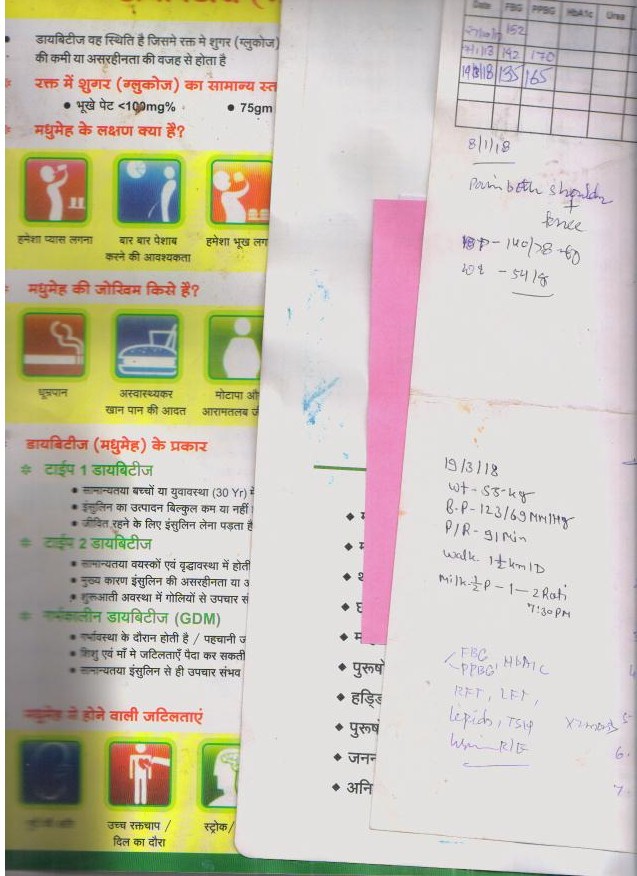 डायबिटीज वह स्थिति है जिसमे रक्त मे शुगर (ग्लुकोज)
की कमी या असरहीनता की वजह से होता है
रक्त में शुगर (ग्लुकोज) का सामान्य स्त
भूखे पेट <100mg% • 75gm
मधुमेह के लक्षण क्या है?
हमेशा प्यास लगना
बार बार पेशाब
करने की आवश्यकता
हमेशा भूख लग
मधुमेह की जोखिम किसे है?
धूम्रपान
अस्वास्थ्यकर
खान पान की आदत
मोटापा औ
आरामतलब
डायबिटीज (मधुमेह) के प्रकार
टाईप 1 डायबिटीज
सामान्यतया बच्चों या युवावस्था (30 Yr) में
इंसुलिन का उत्पादन बिल्कुल कम या नहीं
जीवित रहने के लिए इंसुलिन लेना पड़ता है
टाईप 2 डायबिटीज
सामान्यतया वयस्कों एवं वृद्धावस्था में होती
मुख्य कारण इंसुलिन की असरहीनता या उ
शुरूआती अवस्था में गोलियों से उपचार सं
गर्भकालीन डायबिटीज (GDM)
गर्भावस्था के दौरान होती है / पहचानी ज
शिशु एवं माँ मे जटिलताएँ पैदा कर सकती
सामान्यतया इंसुलिन से ही उपचार संभव
मधुमेह से होने वाली जटिलताएं
उच्च रक्तचाप /
दिल का दौरा
स्ट्रोक/
पुरूषो
हड्डि
पुरूषं
जनन
अनि
Date FBG PPBG HbA1c Urea
152
192 170
19/3/18 135 165
8/1/18
Pain both shoulder
+
knee
BP - 140/78
wt - 54 kg
19/3/18
wt - 55 kg
B.P - 123/69 MM/Hg
P/R - 91/Min
walk 1½ km/D
Milk ½ P - 1 - 2 Roti
7:30 PM
FBG, HbA1C
PPBG
RFT, LFT,
Lipids, TSH
R/E
6.
7.